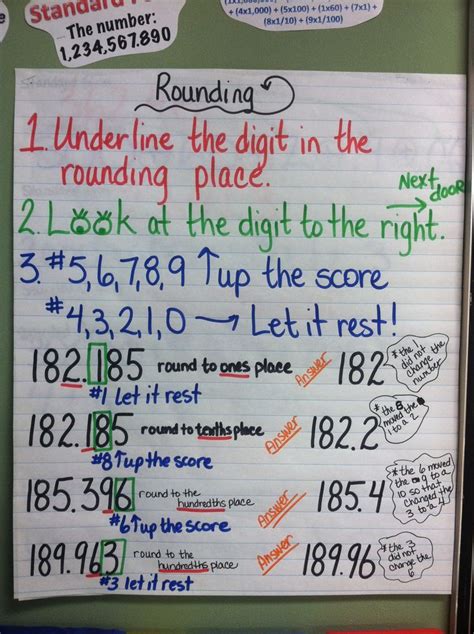 Standard
The number:
1,234,567,890
+ (4x1,000) + (5x100) + (1x60) + (7x1) +
(8x1/10) + (9x1/100)
Rounding
1. Underline the digit in the
rounding place.
Next door
2. Look at the digit to the right.
3. #5,6,7,8,9 ↑ up the score
#4,3,2,1,0 → Let it rest!
182.185 round to ones place Answer 182
*the 1 did not change the number
#1 Let it rest
182.185 round to tenths place Answer 182.2
*the 8 moved the 1 to a 2
#8 ↑ up the score
185.396 round to the hundredths place Answer 185.4
*the 6 moved the 9 to a 10 so that changed the 3 to a 4
#6 ↑ up the score
189.963 round to the hundredths place Answer 189.96
*the 3 did not change the 6
#3 let it rest